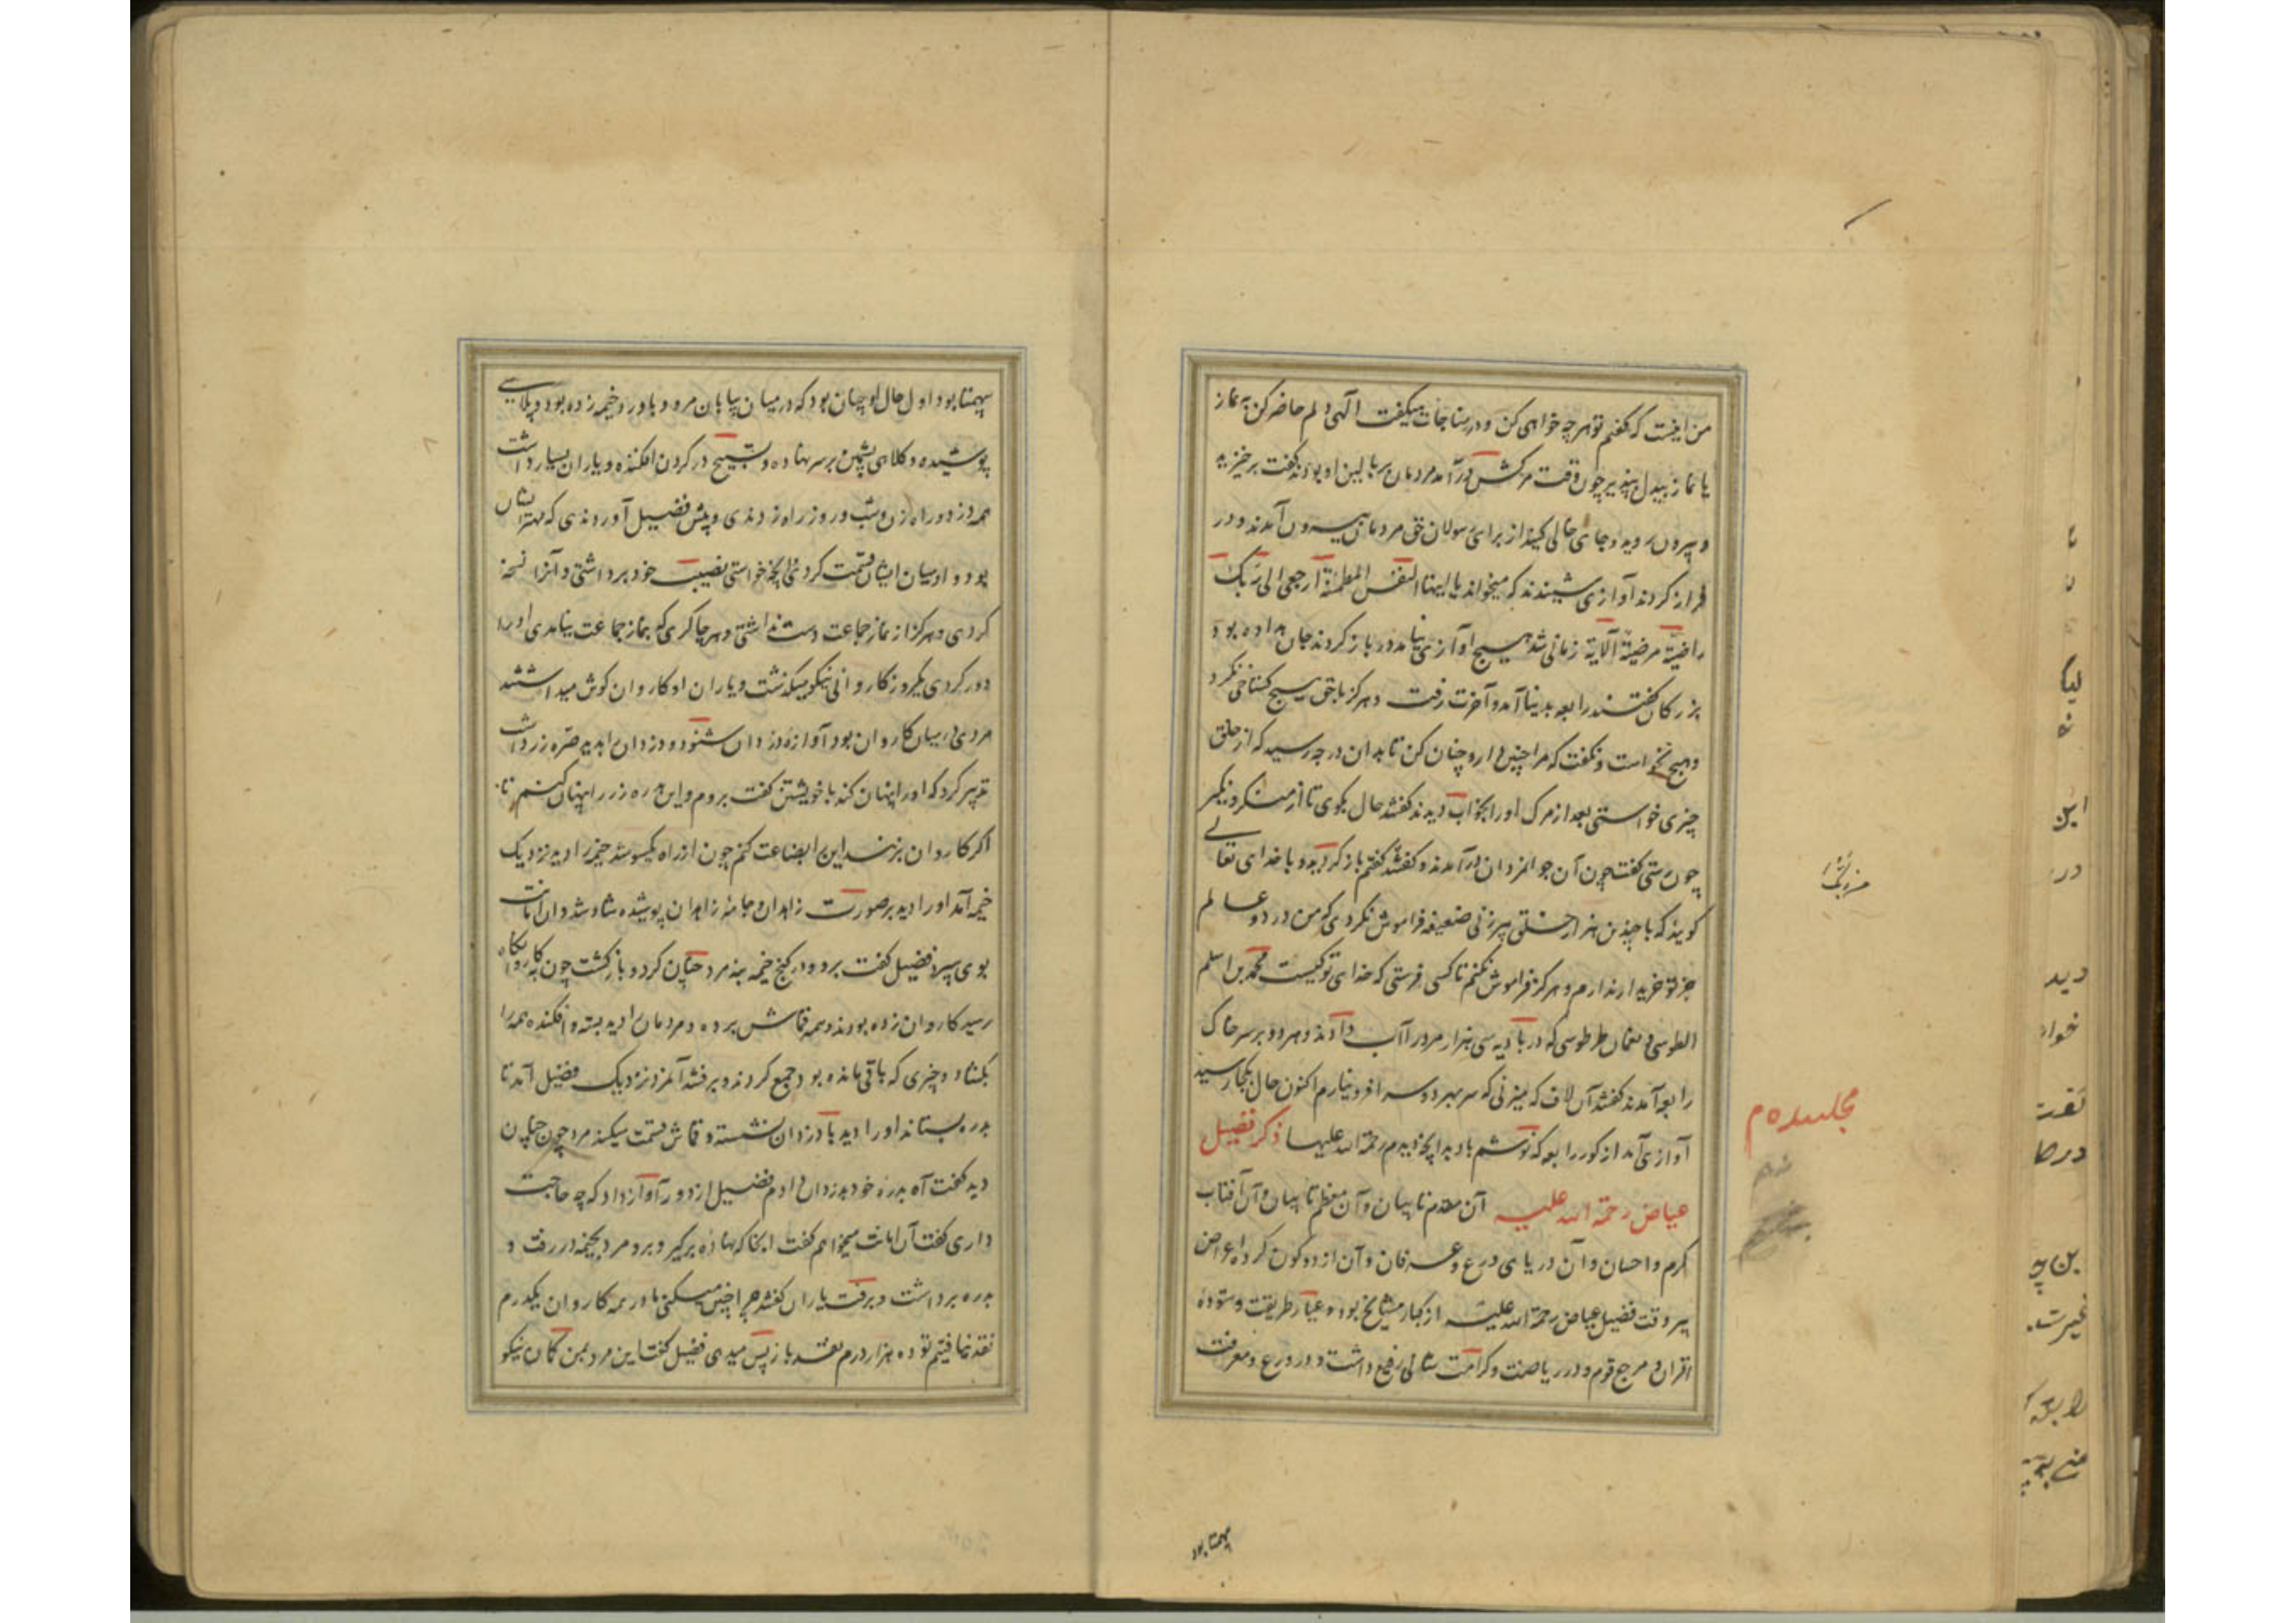 من اینست که گفتم تو هرچه خواهی کن و در مناجات میگفت الهی دلم حاضر کن به نماز
یا نماز بیدل بپذیر چون وقت مرگش درآمد مردمان بر بالین او بودند گفت برخیزید
و بیرون روید و جای خالی کنید از برای رسولان حق مردمان بیرون آمدند و در
فراز کردند آوازی شنیدند که میخواند یا ایتها النفس المطمئنة ارجعی الی ربک
راضیة مرضیة الآیة زمانی شد هیچ آوازی نیامد در باز کردند جان بداده بود
بزرگان گفتند رابعه بدنیا آمد و آخرت رفت و هرگز با حق هیچ گستاخی نکرد
و هیچ نخواست و نگفت که مرا چنین دار و چنان کن تا بدان درجه رسید که از خلق
چیزی خواستی بعد از مرگ او را بخواب دیدند گفتند حال بگوی تا از منکر و نکیر
چون رستی گفت چون آن جوانمردان درآمدند و گفتند گفتم باز گردید و با خدای تعالی
گویید که با چندین هزار خلق پیرزنی ضعیفه فراموش نکردی که من در دو عالم
جز تو خریدار ندارم و هرگز فراموش نکنم تا کسی فرستی که خدای تو کیست محمد بن اسلم
الطوسی و نعمان طرطوسی که در بادیه سی هزار مرد را آب دادند و هر دو بر سر خاک
رابعه آمدند گفتند آن لاف که میزنی که سر بهر دو سرا فرو نیارم اکنون حال بکجا رسید
آوازی آمد از گور رابعه که نوشم باد بدانچه دیدم رحمة الله علیها ذکر فضیل
عیاض رحمة الله علیه آن مقدم تایبان و آن معظم تایبان و آن آفتاب
کرم و احسان و آن دریای ورع و عرفان و آن از دو کون کرده اعراض
پیر وقت فضیل عیاض رحمة الله علیه از کبار مشایخ بود و عیار طریقت و ستوده
اقران و مرجع قوم و در ریاضت و کرامت شانی رفیع داشت و در ورع و معرفت
مجلس دهم
بیهمتا بود
بیهمتا بود و اول حال او چنان بود که در میان بیابان مرو و باورد خیمه زده بود و پلاسی
پوشیده و کلاهی پشمین بر سر نهاده و تسبیح در گردن افکنده و یاران بسیار داشت
همه دزد و راه زن و شب و روز راه زدندی و پیش فضیل آوردندی که مهتر ایشان
بود و او میان ایشان قسمت کردی آنچه خواستی نصیب خود برداشتی و آنرا نسخه
کردی و هرگز از نماز جماعت دست نداشتی و هر چاکری که بنماز جماعت نیامدی او را
دور کردی یکروز کاروانی نیکو میگذشت و یاران او کاروان گوش میداشتند
مردی در میان کاروان بود آوازه دزدان شنوده و دزدان را بدید صره زر داشت
تدبیر کرد که او را پنهان کند با خویشتن گفت بروم و این بدره زر را پنهان کنم تا
اگر کاروان بزنند این را بضاعت کنم چون از راه یکسو شد خیمه را دید نزدیک
خیمه آمد او را دید بر صورت زاهدان و جامه زاهدان پوشیده شاد شد و آن امانت
بوی سپرد فضیل گفت برو و در کنج خیمه بنه مرد چنان کرد و بازگشت چون به کاروانگاه
رسید کاروان زده بودند و همه قماش برده و مردمان را دید بسته و افکنده همه را
بگشاد و چیزی که باقی مانده بود جمع کردند و برفتند آنمرد نزدیک فضیل آمد تا
بدره بستاند او را دید با دزدان نشسته و قماش قسمت میکند مرد چون چنان
دید گفت آه بدره خود بدزدان دادم فضیل از دور آواز داد که چه حاجت
داری گفت آن امانت میخواهم گفت آنجا که نهاده برگیر و برو مرد بخیمه در رفت و
بدره برداشت و برفت یاران گفتند چرا چنین میکنی ما در همه کاروان یکدرم
نقد نیافتیم تو ده هزار درم نقد باز پس میدهی فضیل گفت این مرد بمن گمان نیکو